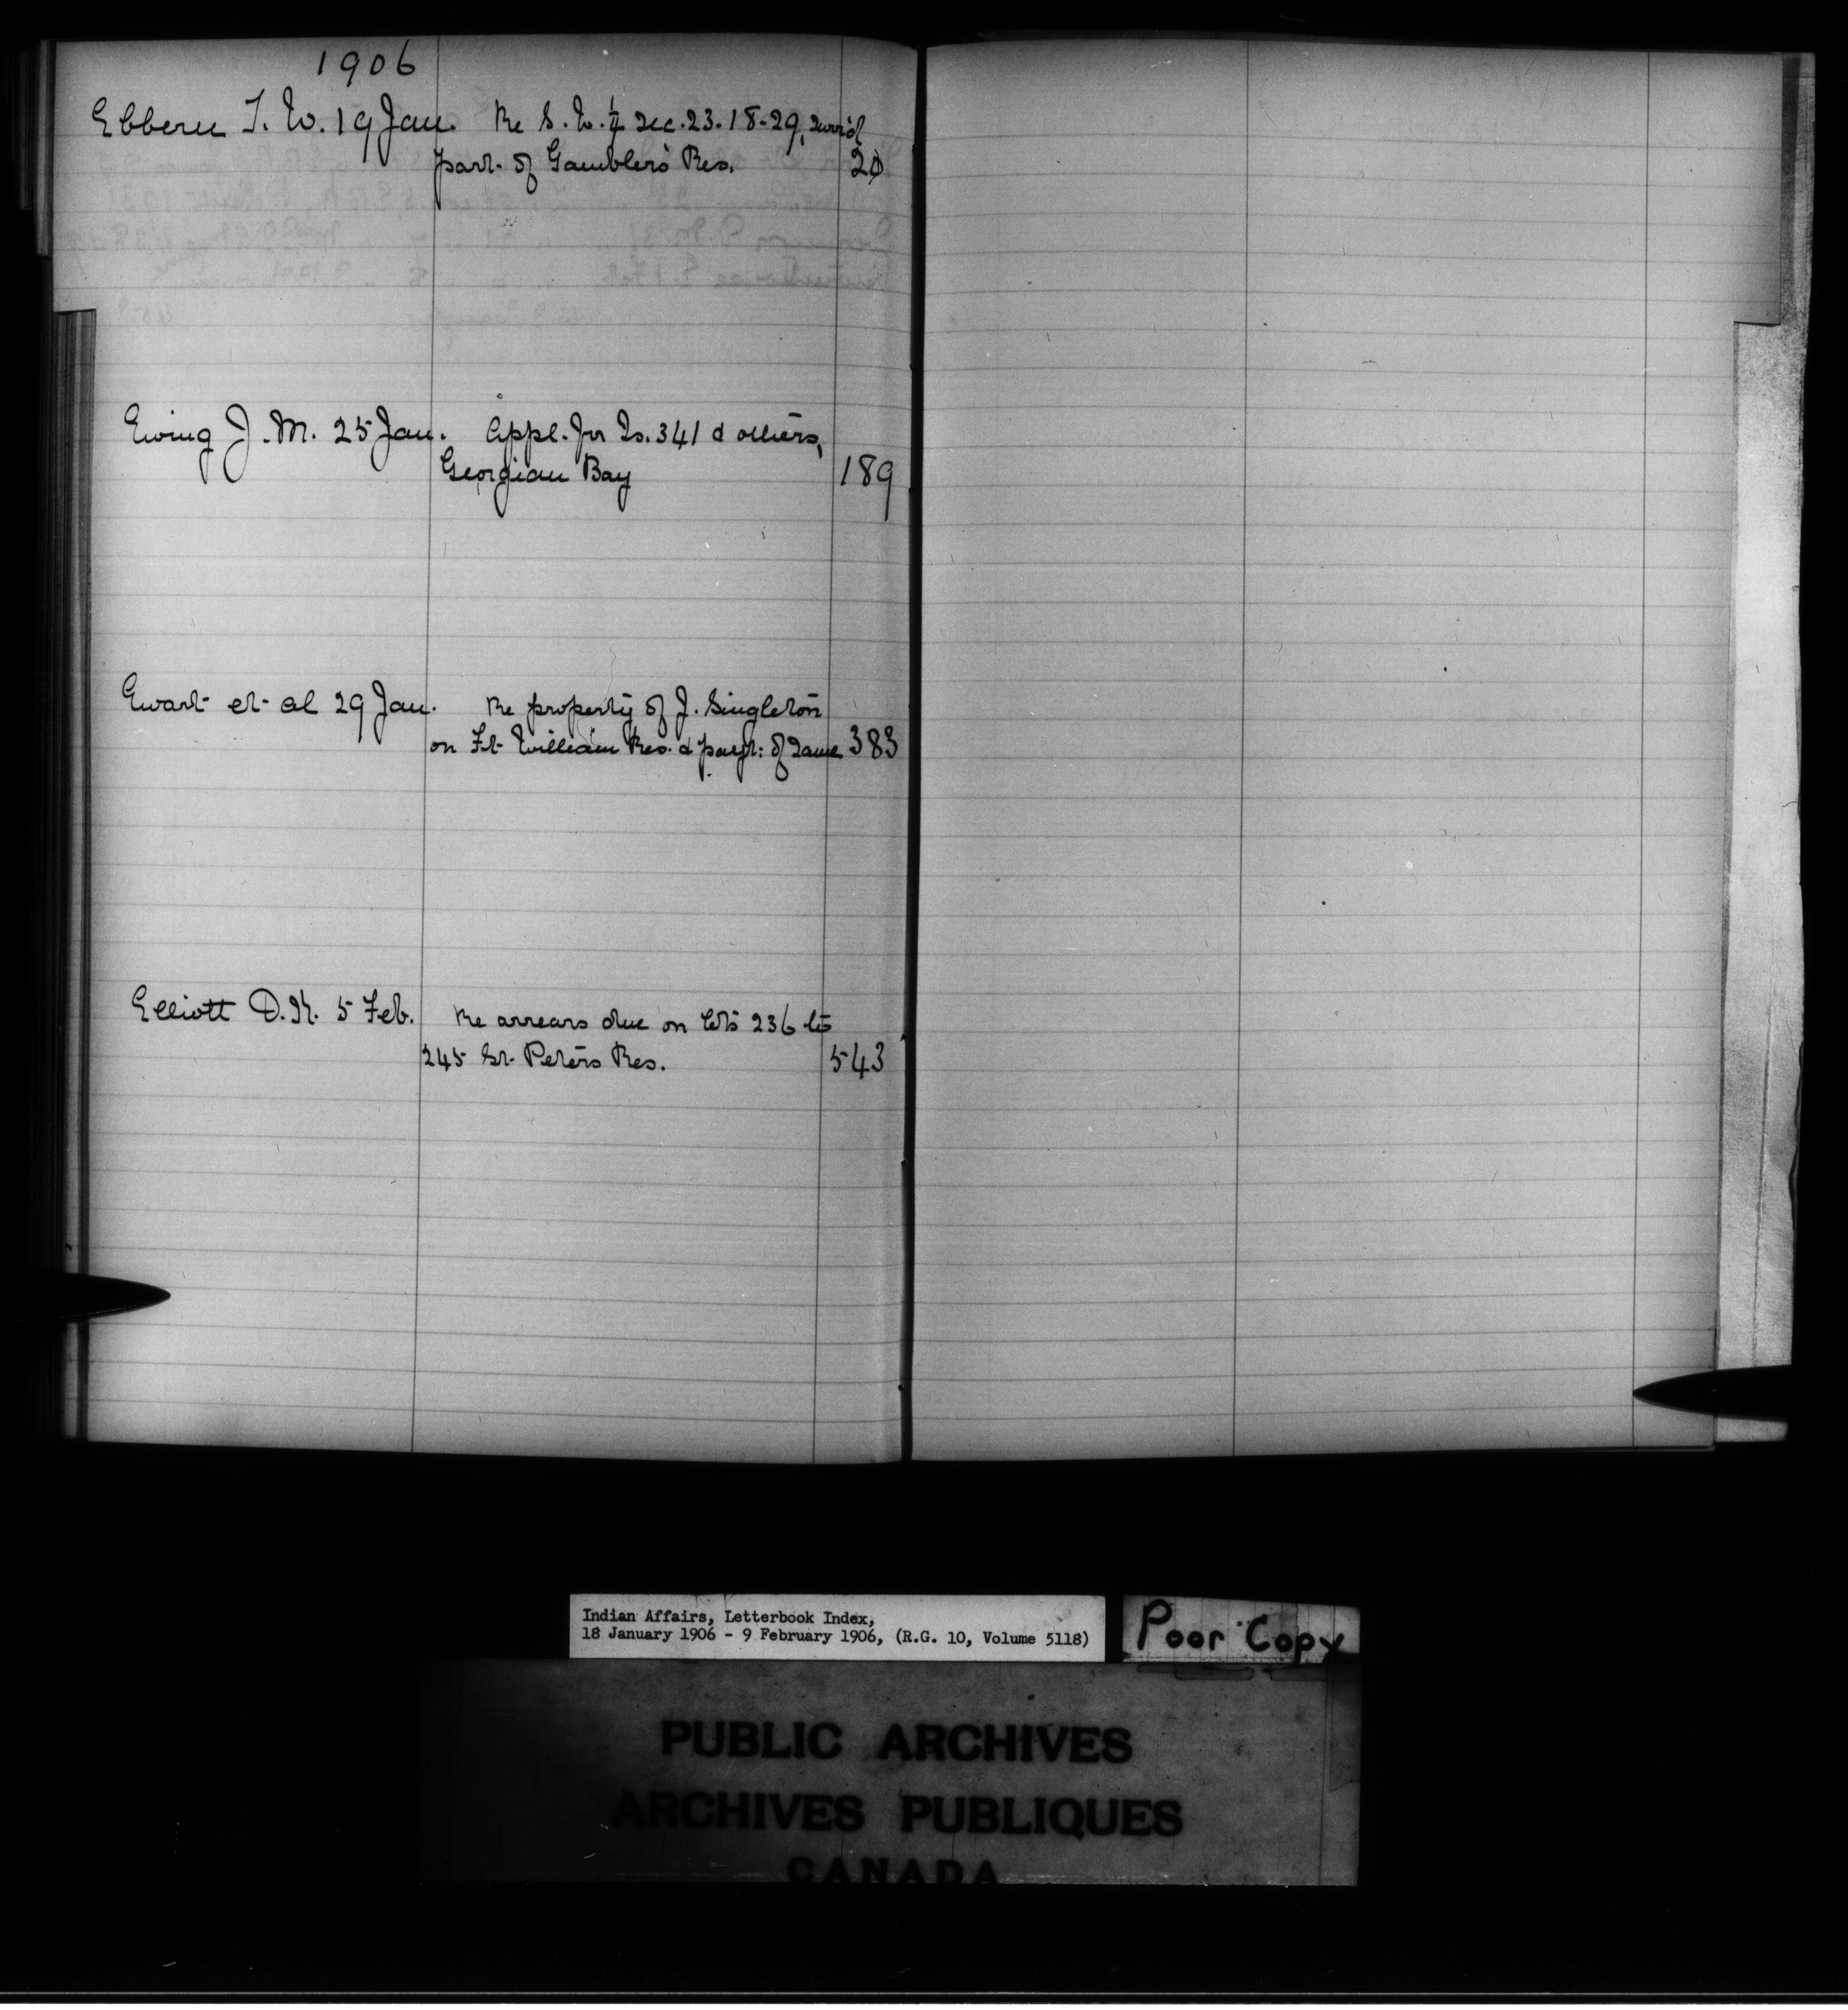 1906
Ebbern T. W. 19 Jan. Re S.W. ¼ Sec. 23-18-29, surr'd
part of Gamblers Res. 20
Ewing J. M. 25 Jan. Appl. for Is. 341 & others,
Georgian Bay 189
Ewart et al 29 Jan. Re property of J. Singleton
on Ft William Res. & payt: of same 383
Elliott D. K. 5 Feb. Re arrears due on lots 236 to
245 St. Peters Res. 543
Indian Affairs, Letterbook Index,
18 January 1906 - 9 February 1906, (R.G. 10, Volume 5118)
Poor Copy
PUBLIC ARCHIVES
ARCHIVES PUBLIQUES
CANADA